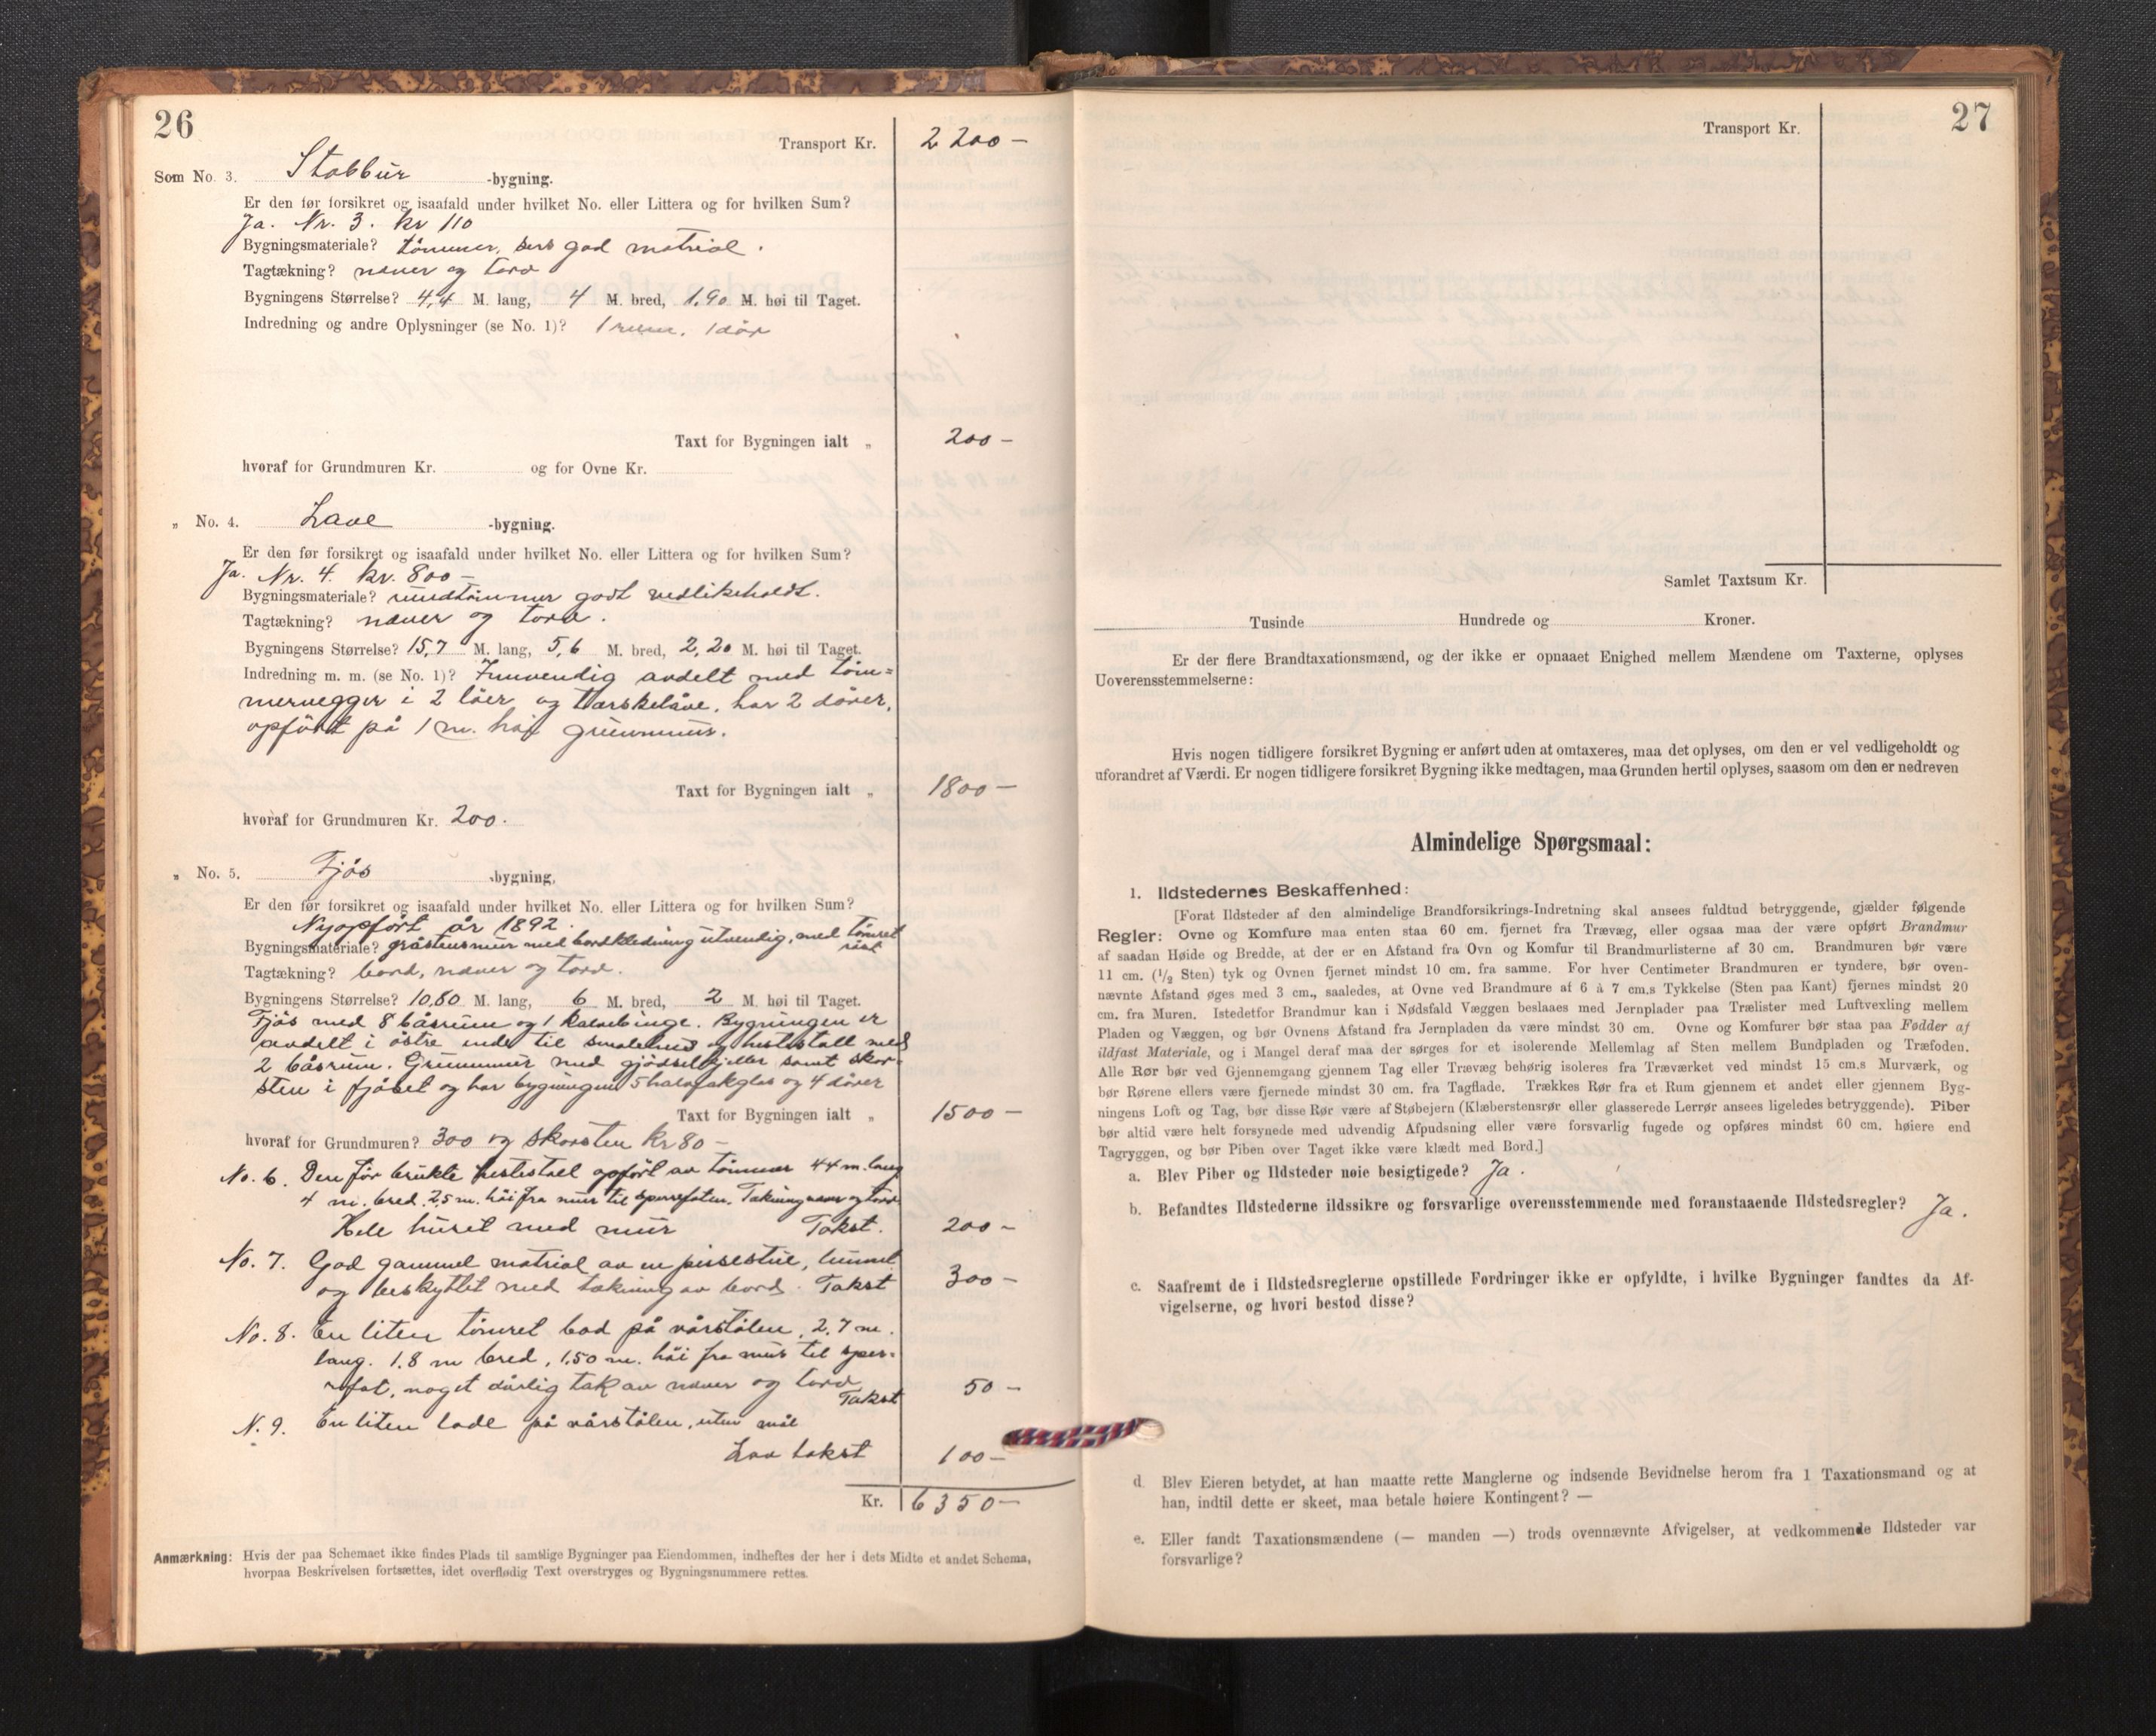 26
Transport Kr. 2200 —
Som No. 3. Stabbur -bygning.
Er den før forsikret og isaafald under hvilket No. eller Littera og for hvilken Sum?
Ja. Nr. 3. kr 110
Bygningsmateriale? tömmer, god matrial.
Tagtækning? næver og torv
Bygningens Størrelse? 4,4 M. lang, 4 M. bred, 1,90 M. høi til Taget.
Indredning og andre Oplysninger (se No. 1)? 1 rum, 1 dör
Taxt for Bygningen ialt „ 200 —
hvoraf for Grundmuren Kr. og for Ovne Kr.
„ No. 4. Lave -bygning.
Er den før forsikret og isaafald under hvilket No. eller Littera og for hvilken Sum?
Ja. Nr. 4. kr. 800 —
Bygningsmateriale? rundtömmer godt vedlikeholdt.
Tagtækning? næver og torv.
Bygningens Størrelse? 15,7 M. lang, 5,6 M. bred, 2,20 M. høi til Taget.
Indredning m. m. (se No. 1)? Innvendig avdelt med töm=
mervegger i 2 löer og tærskelåve, har 2 dörer,
opfört på 1 m. höi grunnmur.
Taxt for Bygningen ialt „ 1800 —
hvoraf for Grundmuren Kr. 200.
„ No. 5. Fjös -bygning,
Er den før forsikret og isaafald under hvilket No. eller Littera og for hvilken Sum?
Nyopfört år 1892.
Bygningsmateriale? gråstensmur med bordklædning utvendig, med tömret
röst
Tagtækning? bord, næver og torv.
Bygningens Størrelse? 10,80 M. lang, 6 M. bred, 2 M. høi til Taget.
Fjös med 8 båsrum og 1 kalvebinge. Bygningen er
avdelt i östre ende til smalehus og hestestall med
2 båsrum. Grunnmur med gjödselkjeller samt skor-
sten i fjöset og har bygningen 5 halvtakglas og 4 dörer
Taxt for Bygningen ialt „ 1500 —
hvoraf for Grundmuren? 300 og skorsten kr 80 —
No. 6. Den för brukte hestestall opfört av tömmer 4,4 m. lang
4 m. bred, 2,5 m. höi fra mur til sperrefoten. Tækning næver og torv.
Hele huset med mur Takst. 200 —
No. 7. God gammel matrial av en peisestue,
og beskyttet med tækning av bord. Takst 300 —
No. 8. En liten tömret bod på vårstölen, 2,7 m.
lang. 1,8 m bred, 1,50 m. höi fra mur til sper=
refot, noget dårlig tak av næver og torv
Takst 50 —
N. 9. En liten lade på vårstölen, uten mål
Lav takst 100 —
Kr. 6350 —
Anmærkning: Hvis der paa Schemaet ikke findes Plads til samtlige Bygninger paa Eiendommen, indheftes der her i dets Midte et andet Schema,
hvorpaa Beskrivelsen fortsættes, idet overflødig Text overstryges og Bygningsnummere rettes.
27
Transport Kr.
Samlet Taxtsum Kr.
Tusinde Hundrede og Kroner.
Er der flere Brandtaxationsmænd, og der ikke er opnaaet Enighed mellem Mændene om Taxterne, oplyses
Uoverensstemmelserne:
Hvis nogen tidligere forsikret Bygning er anført uden at omtaxeres, maa det oplyses, om den er vel vedligeholdt og
uforandret af Værdi. Er nogen tidligere forsikret Bygning ikke medtagen, maa Grunden hertil oplyses, saasom om den er nedreven
Almindelige Spørgsmaal:
1. Ildstedernes Beskaffenhed:
[Forat Ildsteder af den almindelige Brandforsikrings-Indretning skal ansees fuldtud betryggende, gjælder følgende
Regler: Ovne og Komfure maa enten staa 60 cm. fjernet fra Trævæg, eller ogsaa maa der være opført Brandmur
af saadan Høide og Bredde, at der er en Afstand fra Ovn og Komfur til Brandmurlisterne af 30 cm. Brandmuren bør være
11 cm. (1/2 Sten) tyk og Ovnen fjernet mindst 10 cm. fra samme. For hver Centimeter Brandmuren er tyndere, bør oven-
nævnte Afstand øges med 3 cm., saaledes, at Ovne ved Brandmure af 6 à 7 cm.s Tykkelse (Sten paa Kant) fjernes mindst 20
cm. fra Muren. Istedetfor Brandmur kan i Nødsfald Væggen beslaaes med Jernplader paa Trælister med Luftvexling mellem
Pladen og Væggen, og bør Ovnens Afstand fra Jernpladen da være mindst 30 cm. Ovne og Komfurer bør staa paa Fødder af
ildfast Materiale, og i Mangel deraf maa der sørges for et isolerende Mellemlag af Sten mellem Bundpladen og Træfoden.
Alle Rør bør ved Gjennemgang gjennem Tag eller Trævæg behørig isoleres fra Træværket ved mindst 15 cm.s Murværk, og
bør Rørene ellers være fjernede mindst 30 cm. fra Tagflade. Trækkes Rør fra et Rum gjennem et andet eller gjennem Byg-
ningens Loft og Tag, bør disse Rør være af Støbejern (Klæberstensrør eller glasserede Lerrør ansees ligeledes betryggende). Piber
bør altid være helt forsynede med udvendig Afpudsning eller være forsvarlig fugede og opføres mindst 60 cm. høiere end
Tagryggen, og bør Piben over Taget ikke være klædt med Bord.]
a. Blev Piber og Ildsteder nøie besigtigede? Ja.
b. Befandtes Ildstederne ildssikre og forsvarlige overensstemmende med foranstaaende Ildstedsregler? Ja.
c. Saafremt de i Ildstedsreglerne opstillede Fordringer ikke er opfyldte, i hvilke Bygninger fandtes da Af-
vigelserne, og hvori bestod disse?
d. Blev Eieren betydet, at han maatte rette Manglerne og indsende Bevidnelse herom fra 1 Taxationsmand og at
han, indtil dette er skeet, maa betale høiere Kontingent? —
e. Eller fandt Taxationsmændene (— manden —) trods ovennævnte Afvigelser, at vedkommende Ildsteder var
forsvarlige?